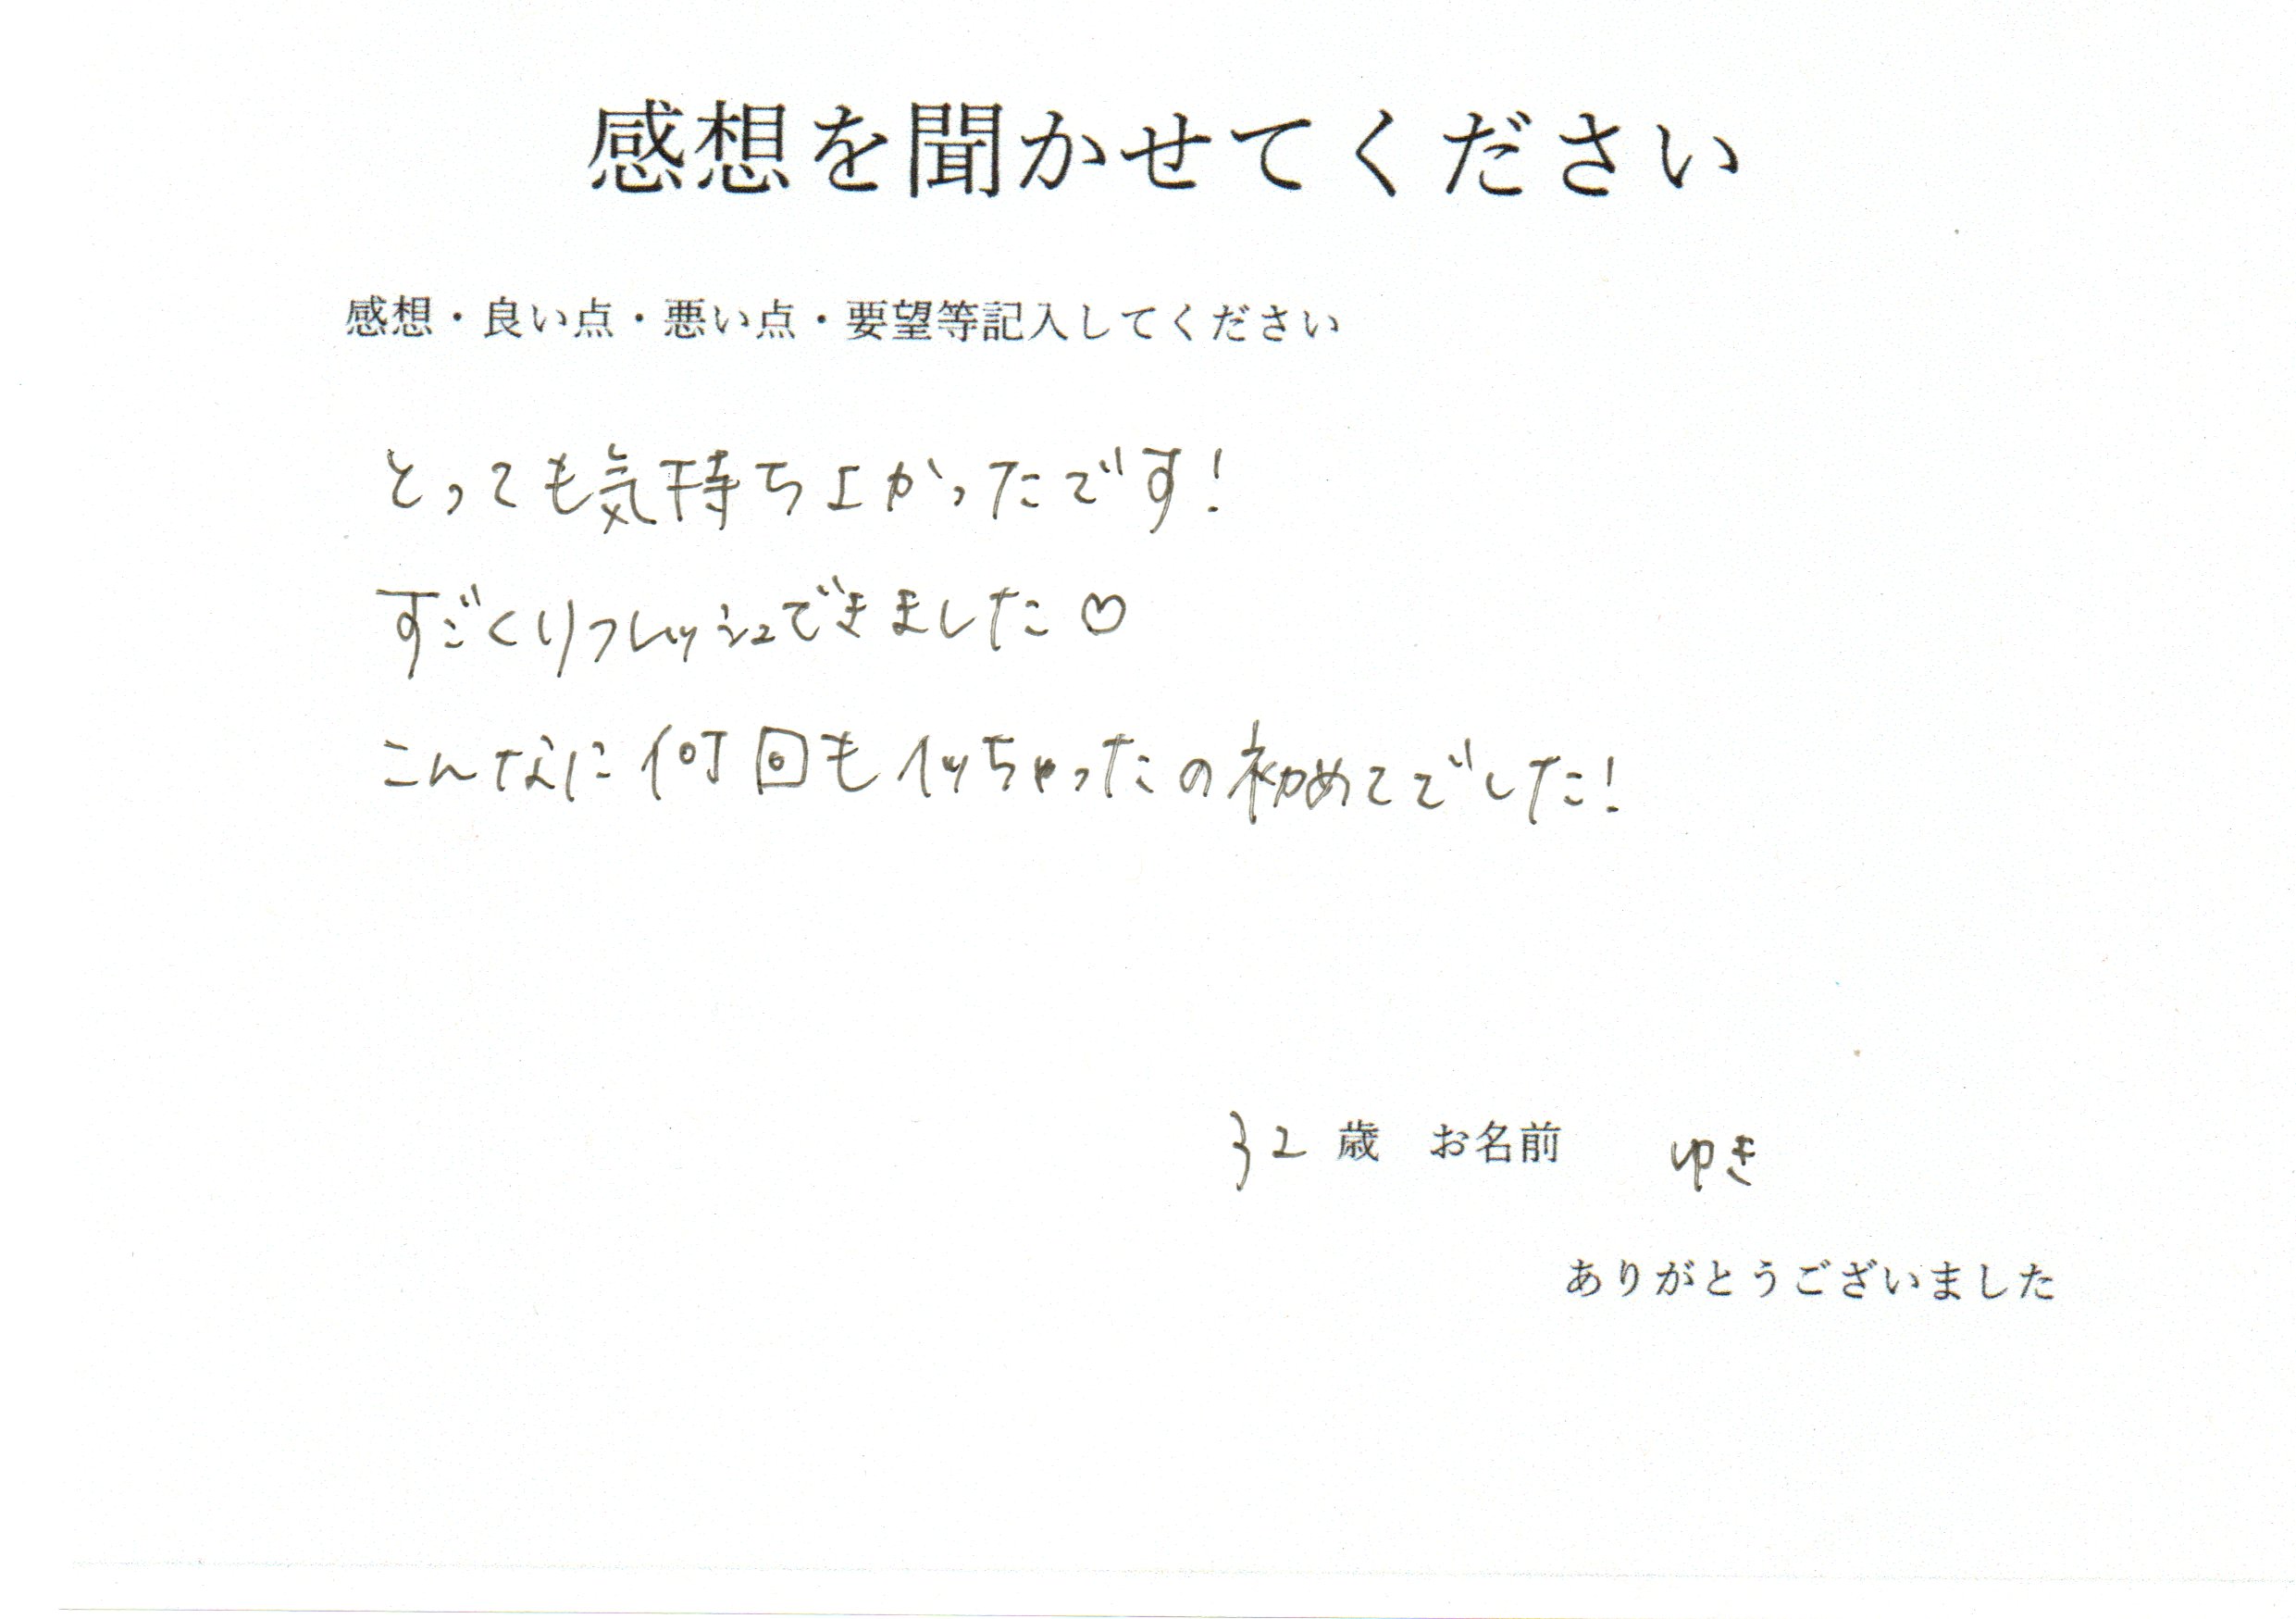 感想を聞かせてください
感想・良い点・悪い点・要望等記入してください
とっても気持ちよかったです！
すごくリフレッシュできました♡
こんなに何回もイッちゃったの初めてでした！
32歳 お名前 ゆき
ありがとうございました